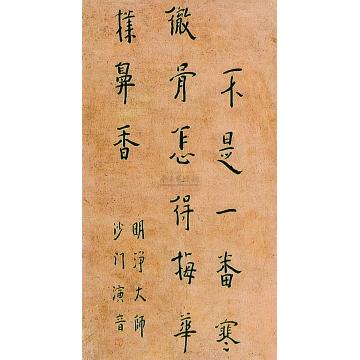 不是一番寒
徹骨怎得梅華
撲鼻香
明淨大師
沙门演音